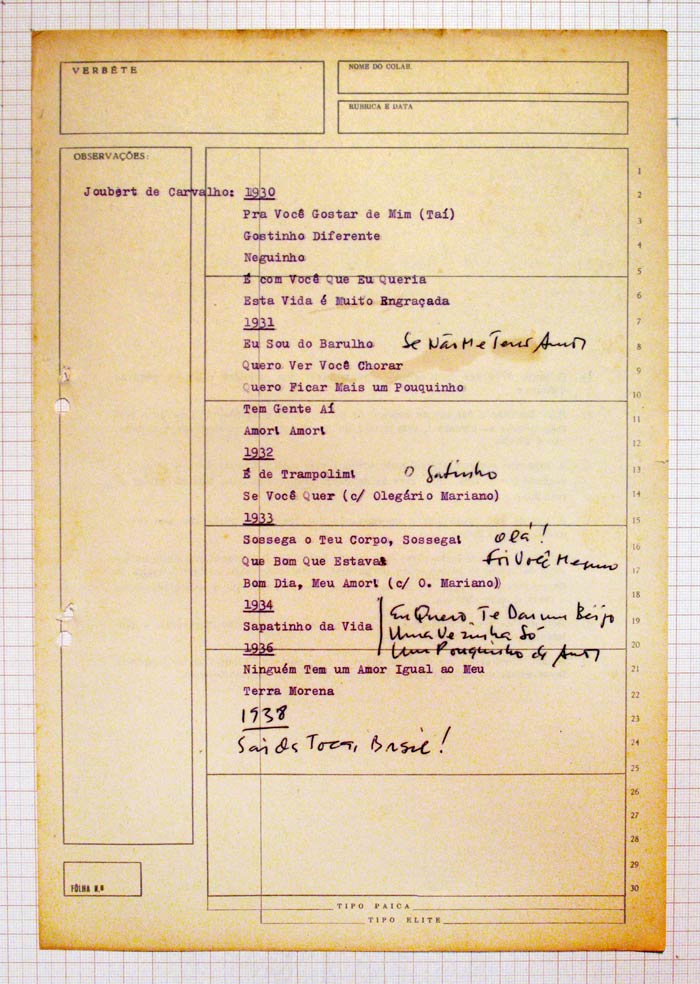 VERBÊTE
NOME DO COLAB.
RUBRICA E DATA
OBSERVAÇÕES:
1
Joubert de Carvalho: 1930
2
Pra Você Gostar de Mim (Taí)
3
Gostinho Diferente
4
Neguinho
5
É com Você Que Eu Queria
6
Esta Vida é Muito Engraçada
1931
7
Eu Sou do Barulho Se Não Me Tens Amor
8
Quero Ver Você Chorar
9
Quero Ficar Mais um Pouquinho
10
Tem Gente Aí
11
Amor! Amor!
12
1932
É de Trampolim! O Gatinho
13
Se Você Quer (c/ Olegário Mariano)
14
1933
15
Sossega o Teu Corpo, Sossega! Olá!
16
Que Bom Que Estava! Foi Você Mesmo
17
Bom Dia, Meu Amor! (c/ O. Mariano)
18
1934 Eu Quero Te Dar um Beijo
19
Sapatinho da Vida Uma Vezinha Só
20
1936 Um Pouquinho de Amor
Ninguém Tem um Amor Igual ao Meu
21
Terra Morena
22
1938
23
Sai da Toca, Brasil!
24
25
26
27
28
29
30
FÔLHA N.º
TIPO PAICA
TIPO ELITE